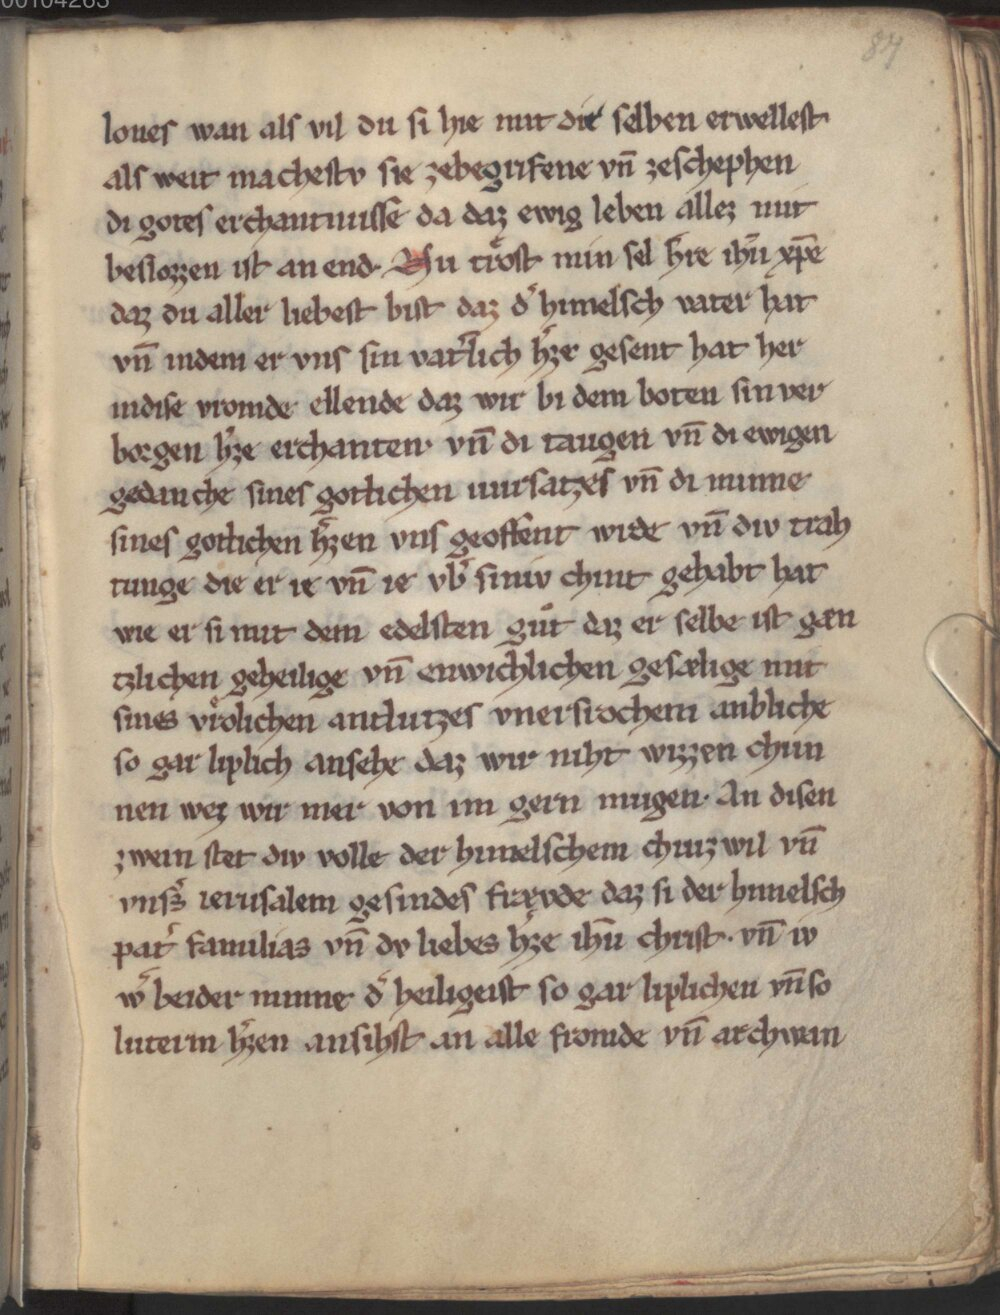 00104263
87
loues wan als vil du si hie mit dir selben erwellest
als weit machestv sie zebegrifene vn̄ zeschephen
di gotes erchantnusse da daz ewig leben allez mit
beslozzen ist an end. Nu trǒst min sel h̓re ihū xp̄e
daz du aller liebest bist daz d̓ himelsch vater hat
vn̄ indem er vns sin vat̓lich h̓ze gesent hat her
indise vromde ellende daz wir bi dem boten sin ver
borgen h̓ze erchanten. vn̄ di taugen vn̄ di ewigen
gedanche sines gotlichen uursatzes vn̄ di minne
sines gotlichen h̓zen vns geoffent wrde vn̄ div trah
tunge die er ie vn̄ ie vb̓ siniv chint gehabt hat
wie er si mit dem edelsten gůt daz er selbe ist gæn
tzlichen geheilige vn̄ enwichlichen gesælige mit
sines vrǒlichen antlutzes vnersrochem anbliche
so gar liplich ansehe daz wir niht wizzen chun
nen wez wir mer von im gern mugen. An disen
zwein stet div volle der himelschem churzwil vn̄
vns̓ ierusalem gesindes fræude daz si der himelsch
pat̓ familias vn̄ dv liebes h̓ze ihū christ. vn̄ iv
w̓ beider minne d̓ heiligeist so gar liplichen vn̄ so
luterm h̓zen ansihst an alle fromde vn̄ archwan